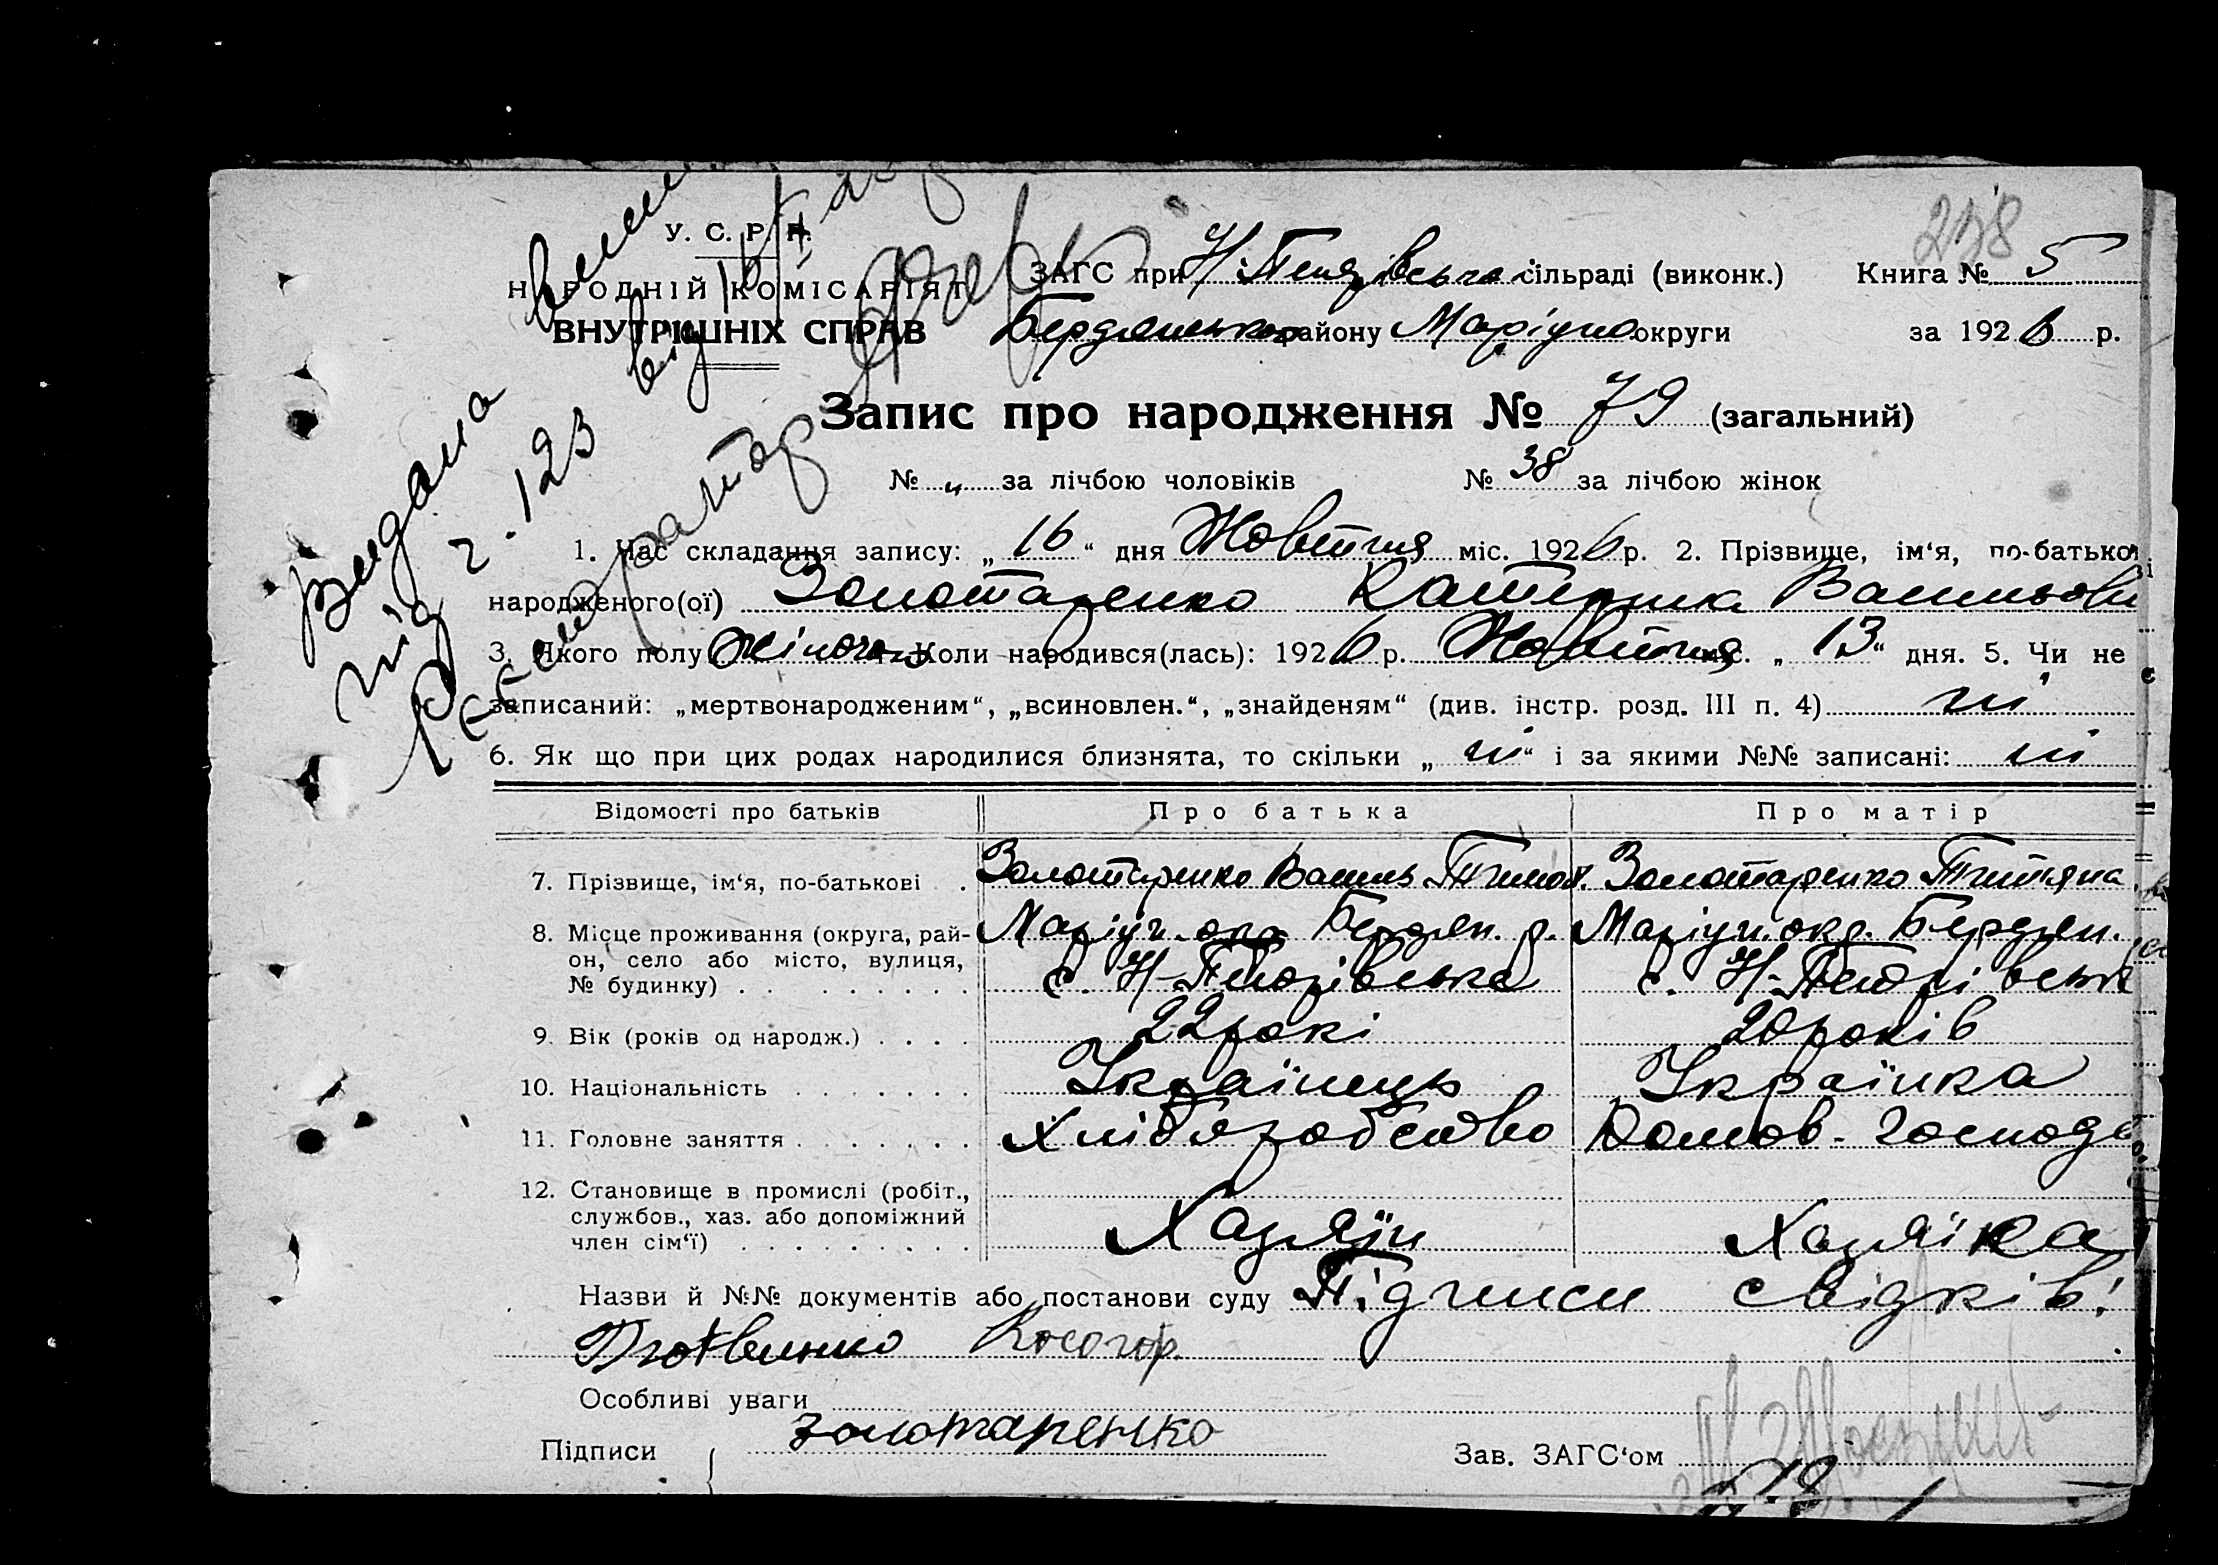 238
У. С. Р. Р.
НАРОДНІЙ КОМІСАРІЯТ
ВНУТРІШНІХ СПРАВ
ЗАГС при сільраді (виконк.) Книга № 5
району Маріуп. округи за 1926 р.
Видана
під ч. 123 від
Запис про народження № 79 (загальний)
№ „ за лічбою чоловіків № 38 за лічбою жінок
1. Час складання запису: „16“ дня Жовтня міс. 1926 р. 2. Прізвище, ім‘я, по-батькові
народженого(ої) Золотаренко Катерина Васильовн
3. Якого полу жіноч. Коли народився(лась): 1926 р. Жовтня „13“ дня. 5. Чи не є
записаний: „мертвонародженим“, „всиновлен.“, „знайденям“ (див. інстр. розд. III п. 4) ні
6. Як що при цих родах народилися близнята, то скільки „ні“ і за якими №№ записані: ні
Відомості про батьків Про батька Про матір
7. Прізвище, ім‘я, по-батькові Золотаренко Василь Тимоф. Золотаренко Титяна
8. Місце проживання (округа, рай- Маріуп. окр. Бердян. р. Маріуп. окр. Бердян.
он, село або місто, вулиця, с. Н-
№ будинку) с. Н-
9. Вік (років од народж.) 22 рокі 20 років
10. Національність Українець Українка
11. Головне заняття Хліборобство Домов. господ
12. Становище в промислі (робіт.,
службов., хаз. або допоміжний Хазяїн Хазяїка
член сім‘ї)
Назви й №№ документів або постанови суду Підписи свідків:
Особливі уваги
Підписи Золотаренко Зав. ЗАГС‘ом